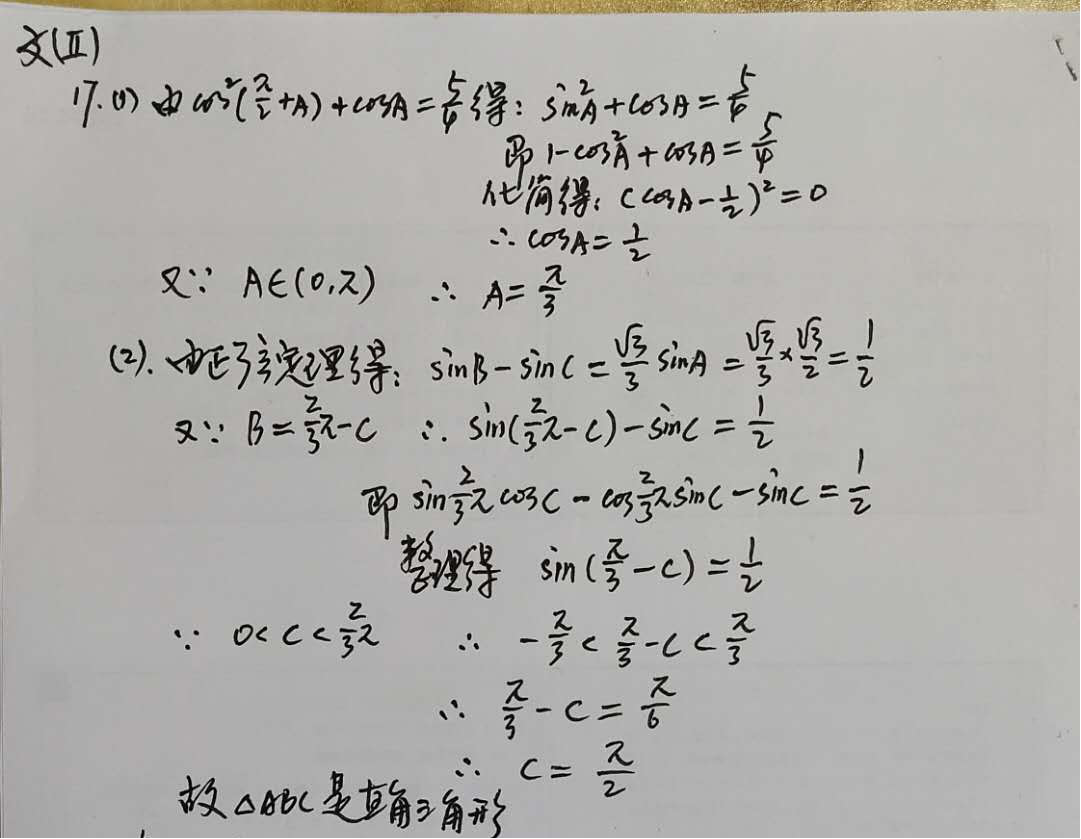 文(Ⅱ)
17.(1) 由cos²(π/2+A)+cosA=5/4得: sin²A+cosA=5/4
即 1-cos²A+cosA=5/4
化简得: (cosA-1/2)²=0
∴ cosA=1/2
又∵ A∈(0,π) ∴ A=π/3
(2). 由正弦定理得: sinB-sinC=√3/3 sinA=√3/3×√3/2=1/2
又∵ B=2/3π-C ∴ sin(2/3π-C)-sinC=1/2
即 sin2/3π cosC-cos2/3π sinC-sinC=1/2
整理得 sin(π/3-C)=1/2
∵ 0<C<2/3π ∴ -π/3<π/3-C<π/3
∴ π/3-C=π/6
∴ C=π/2
故△ABC是直角三角形